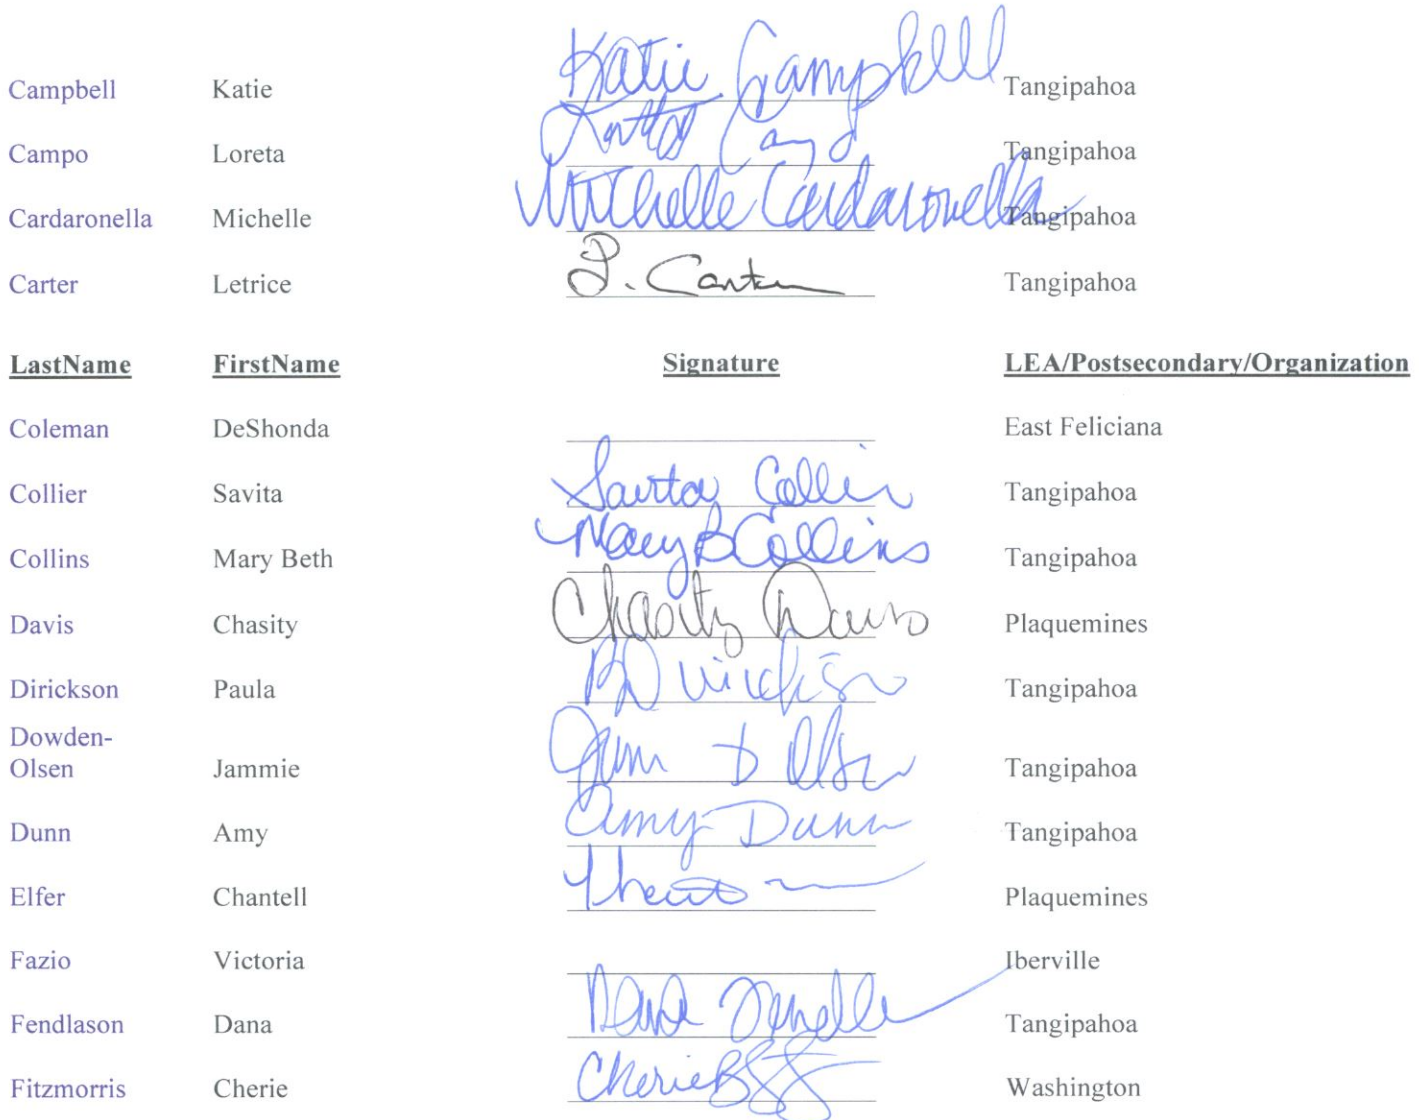 Campbell Katie Katie Campbell Tangipahoa
Campo Loreta Tangipahoa
Cardaronella Michelle Michelle Cardaronella Tangipahoa
Carter Letrice L. Carter Tangipahoa
LastName FirstName Signature LEA/Postsecondary/Organization
Coleman DeShonda East Feliciana
Collier Savita Savita Collier Tangipahoa
Collins Mary Beth Mary B Collins Tangipahoa
Davis Chasity Chasity Davis Plaquemines
Dirickson Paula Tangipahoa
Dowden-
Olsen Jammie D Olsen Tangipahoa
Dunn Amy Amy Dunn Tangipahoa
Elfer Chantell Plaquemines
Fazio Victoria Iberville
Fendlason Dana Dana Tangipahoa
Fitzmorris Cherie Cherie B Washington